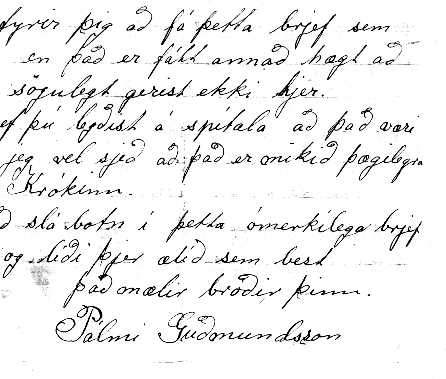 fyrir þig að fá þetta brjef sem
en það er fátt annað hægt að
sögulegt gerist ekki hjer.
ef þú legðist á spítala að það væri
jeg vel sjeð að það er mikið þægilegra
Krókinn.
að slá botn í þetta ómerkilega brjef
og líði þjer ætíð sem best
það mælir bróðir þinn.
Pálmi Guðmundsson